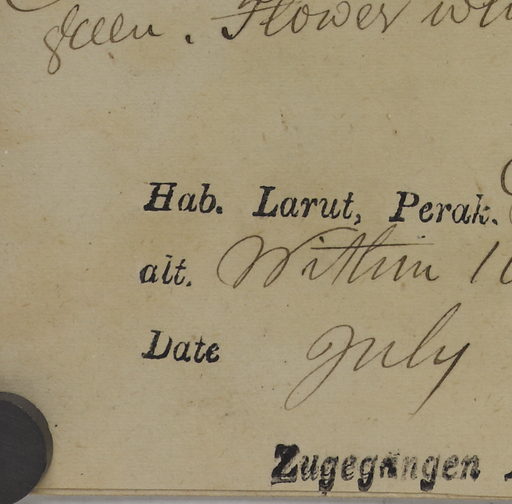 green. Flower
Hab. Larut, Perak.
alt. Within
Date July
Zugegangen